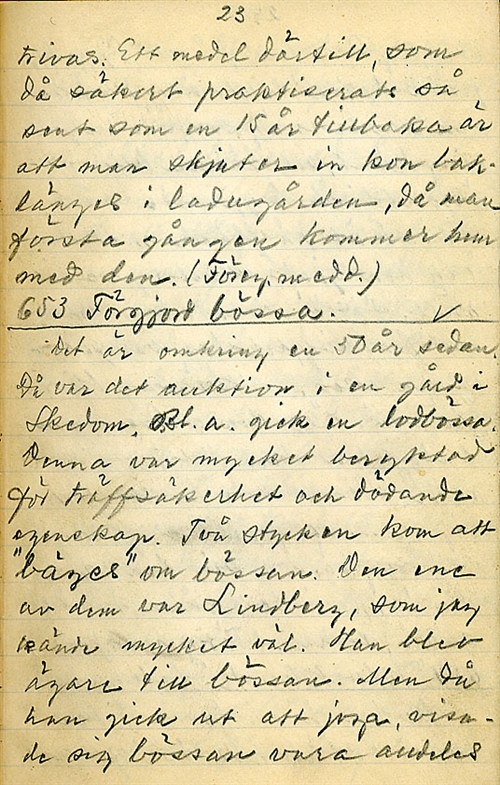 23
trivas. Ett medel därtill, som
då säkert praktiserats så
sent som en 15 år tillbaka är
att man skjuter in kon bak-
länges i ladugården, då man
första gången kommer hem
med den. (Förey. medd.)
653 Förgjord bössa. ✓
Det är omkring en 50 år sedan.
Då var det auktion i en gård i
Skedom. Bl. a. gick en lodbössa.
Denna var mycket beryktad
för träffsäkerhet och dödande
egenskap. Två stycken kom att
"bäges" om bössan. Den ene
av dem var Lindberg, som jag
kände mycket väl. Han blev
ägare till bössan. Men då
han gick ut att jaga, visa-
de sig bössan vara andeles